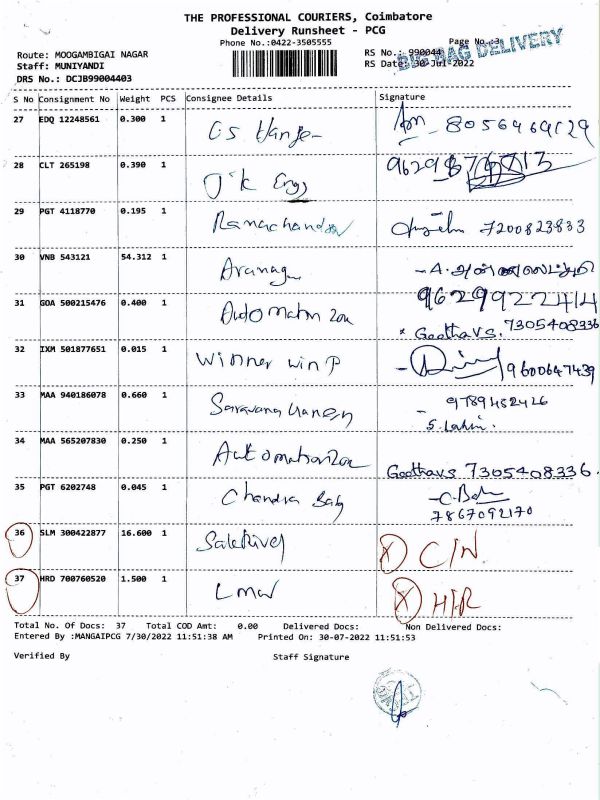 THE PROFESSIONAL COURIERS, Coimbatore
Delivery Runsheet - PCG
Phone No.:0422-3505555
Page No.:3
Route: MOOGAMBIGAI NAGAR
RS No.: 990044
BIG BAG DELIVERY
Staff: MUNIYANDI
RS Date: 30-Jul-2022
DRS No.: DCJB99004403
S No Consignment No Weight PCS Consignee Details Signature
27 EDQ 12248561 0.300 1 8056469129
28 CLT 265198 0.390 1 Engg
29 PGT 4118770 0.195 1 7200823833
30 VNB 543121 54.312 1
9629922414
31 GOA 500215476 0.400 1 Automation Zon * Geetha V.S. 7305408336
32 IXM 501877651 0.015 1 Winner win P 9600647439
33 MAA 940186078 0.660 1 9789452426
S. Lakmi.
34 MAA 565207830 0.250 1 Automation Zon Geetha V.S 7305408336.
35 PGT 6202748 0.045 1 Chandra Bab
7867092170
36 SLM 300422877 16.600 1 X C/N
37 HRD 700760520 1.500 1 LMW X
Total No. Of Docs: 37 Total COD Amt: 0.00 Delivered Docs: Non Delivered Docs:
Entered By :MANGAIPCG 7/30/2022 11:51:38 AM Printed On: 30-07-2022 11:51:53
Verified By Staff Signature